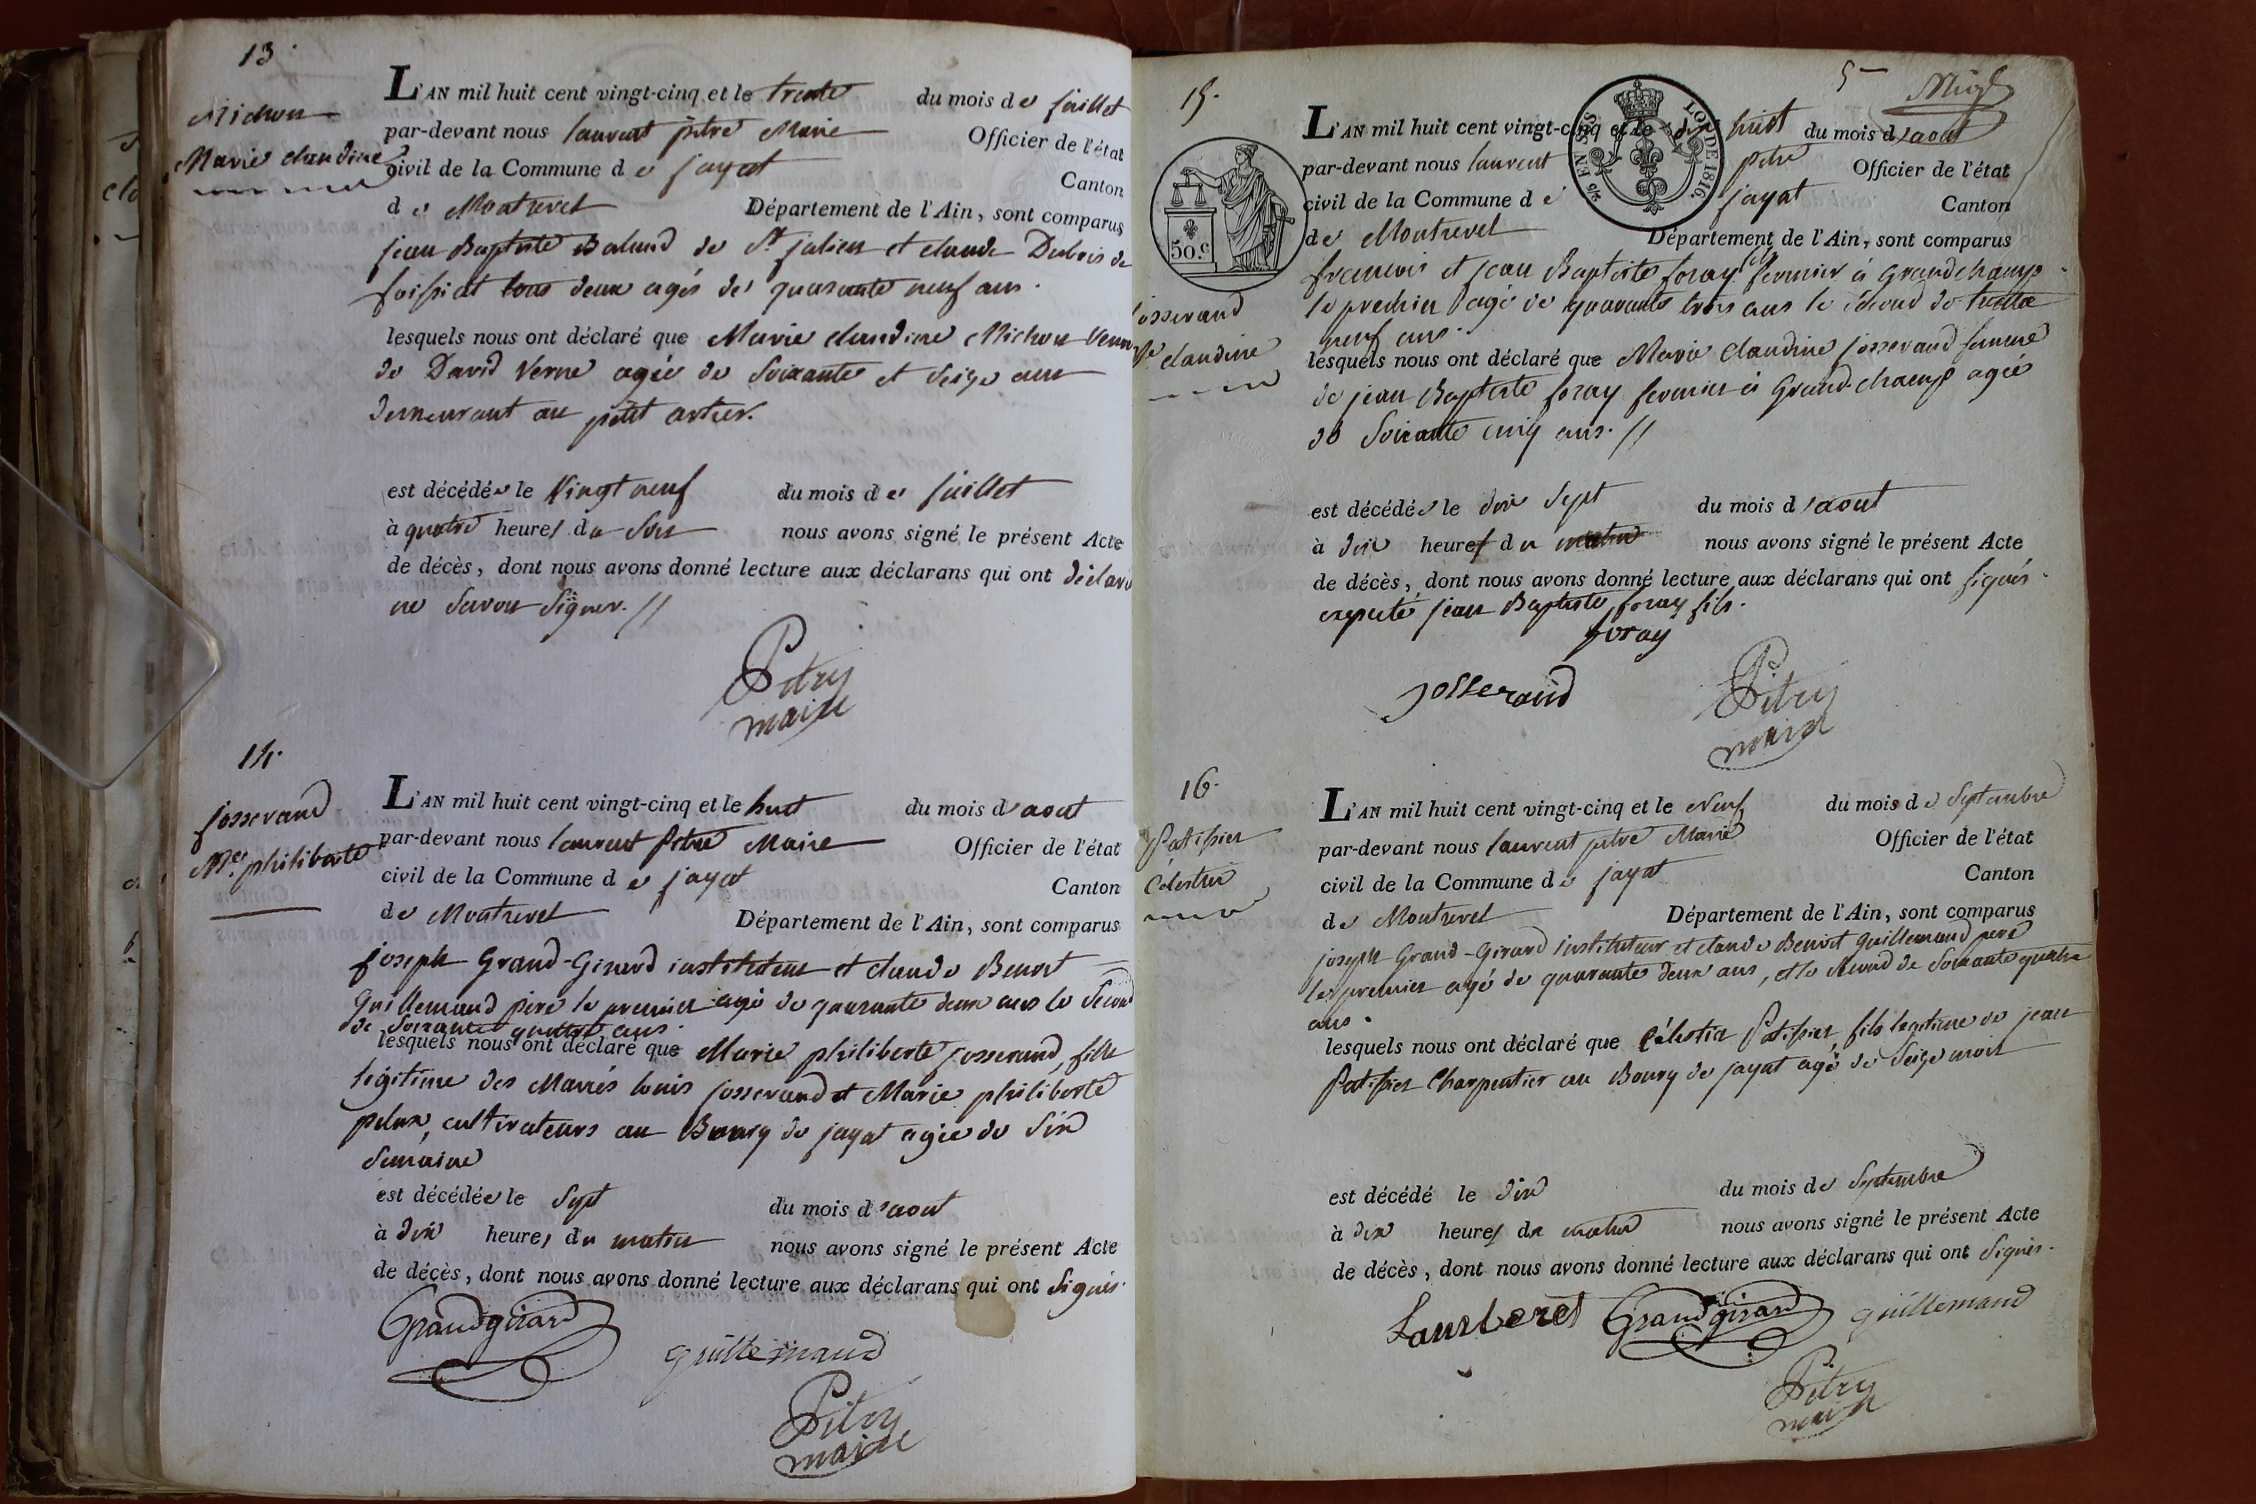 13.
Michon
Marie claudine
L'AN mil huit cent vingt-cinq et le trente du mois de juillet
par-devant nous laurent pitre Maire Officier de l'état
civil de la Commune de jayat Canton
de Montrevel Département de l'Ain, sont comparus
jean Baptiste Baland de St julien et claude Dubois de
foissiat tous deux agés de quarante neuf ans.
lesquels nous ont déclaré que Marie claudine Michon veuve
de David Verne agée de soixante et seize ans
demeurant au petit
est décédée le vingt neuf du mois de juillet
à quatre heures du soir nous avons signé le présent Acte
de décès, dont nous avons donné lecture aux déclarans qui ont déclaré
ne savoir signer. //
Pitry
maire
14.
josserand
Mie philiberte
L'AN mil huit cent vingt-cinq et le huit du mois d'aout
par-devant nous laurent pitre Maire Officier de l'état
civil de la Commune de jayat Canton
de Montrevel Département de l'Ain, sont comparus
joseph Grand-Girard instituteur et claude Benoit
Guillemaud père le premier agé de quarante deux ans le second
de soixante quatre ans.
lesquels nous ont déclaré que Marie philiberte josserand, fille
légitime des Mariés louis josserand et Marie philiberte
pelux, cultivateurs au Bourg de jayat agée de six
semaine
est décédée le sept du mois d'aout
à dix heures du matin nous avons signé le présent Acte
de décès, dont nous avons donné lecture aux déclarans qui ont signés.
Grandgirard
guillemaud
Pitry
maire
5
15.
L'AN mil huit cent vingt-cinq et le dix huit du mois d'aout
par-devant nous laurent pitre Officier de l'état
civil de la Commune de jayat Canton
de Montrevel Département de l'Ain, sont comparus
50.c
LOI DE 1816
josserand
Mie claudine
francois et jean Baptiste foray fils fermier à Grandchamp
le premier agé de quarante trois ans le second de trente
neuf ans.
lesquels nous ont déclaré que Marie Claudine josserand femme
de jean Baptiste foray fermier à Grand-champ agée
de soixante cinq ans. //
est décédée le dix sept du mois d'aout
à dix heures du matin nous avons signé le présent Acte
de décès, dont nous avons donné lecture aux déclarans qui ont signés.
excepté jean Baptiste foray fils.
foray
josserand
Pitry
maire
16.
Patissier
Célestin
L'AN mil huit cent vingt-cinq et le Neuf du mois de Septembre
par-devant nous laurent pitre Maire Officier de l'état
civil de la Commune de jayat Canton
de Montrevel Département de l'Ain, sont comparus
joseph Grand-Girard instituteur et claude Benoit Guillemaud père
le premier agé de quarante deux ans, et le second de soixante quatre
ans.
lesquels nous ont déclaré que Célestin Patissier fils légitime de jean
Patissier Charpentier au Bourg de jayat agé de seize mois
est décédé le dix du mois de Septembre
à dix heures du matin nous avons signé le présent Acte
de décès, dont nous avons donné lecture aux déclarans qui ont signés.
Lamberet Grandgirard guillemaud
Pitry
maire